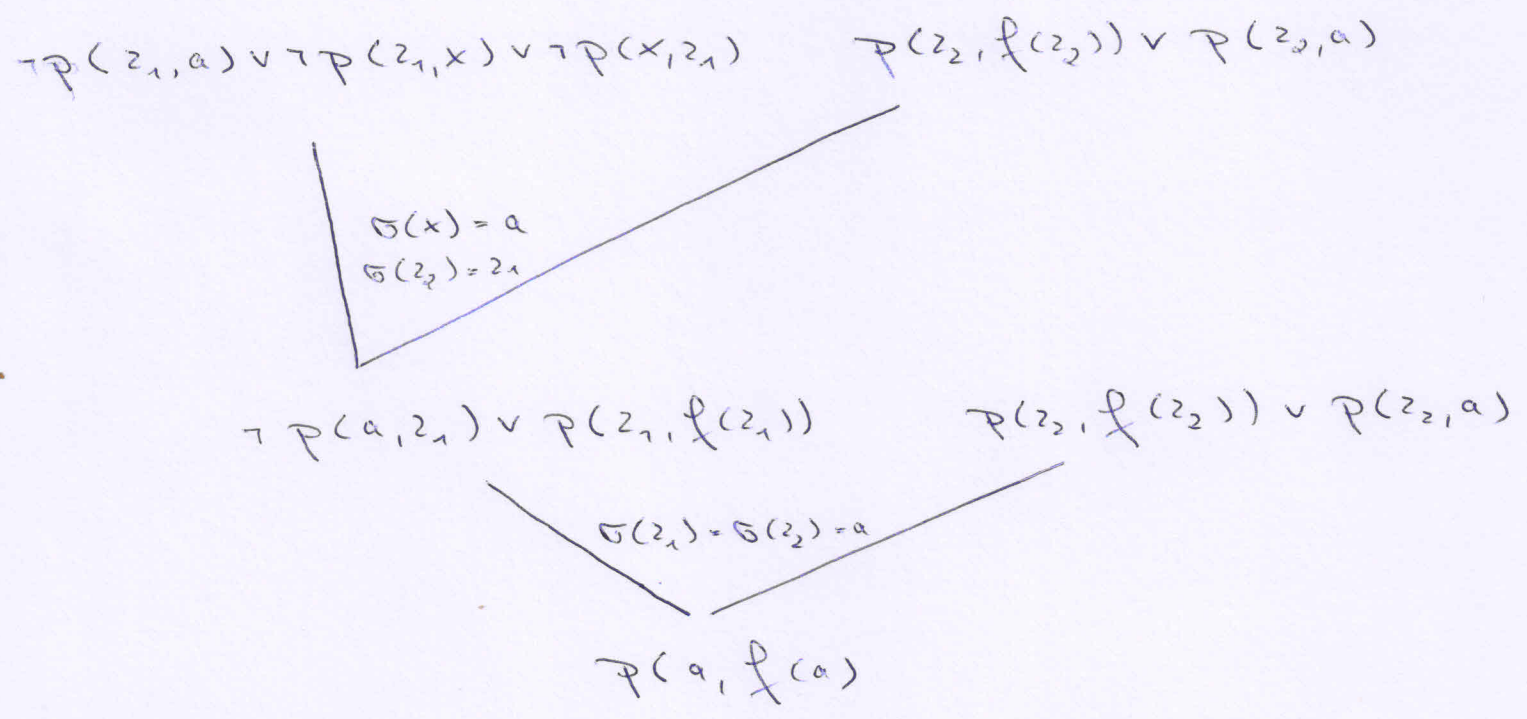 ¬p(z₁,a) ∨ ¬p(z₁,x) ∨ ¬p(x,z₁) p(z₂,f(z₂)) ∨ p(z₂,a)
σ(x) = a
σ(z₂) = z₁
¬p(a,z₁) ∨ p(z₁,f(z₁)) p(z₂,f(z₂)) ∨ p(z₂,a)
σ(z₁) = σ(z₂) = a
p(a,f(a)